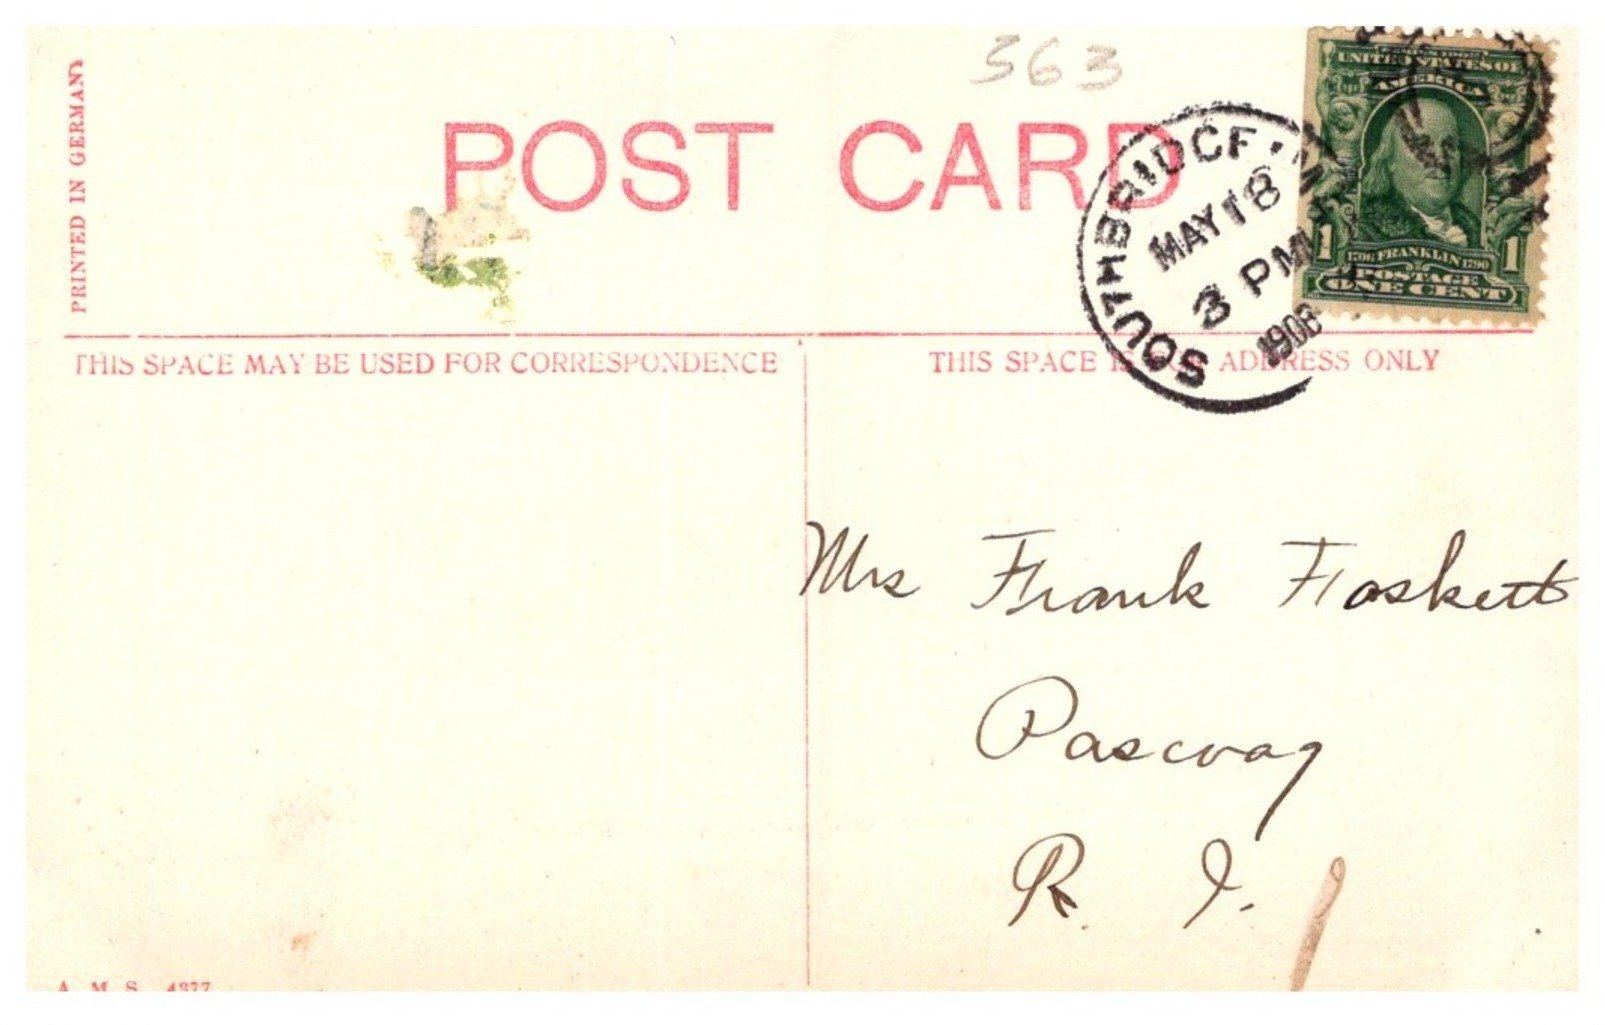 363
POST CARD
PRINTED IN GERMANY
UNITED STATES OF
AMERICA
1 1706 FRANKLIN 1790 1
POSTAGE
ONE CENT
SOUTHBRIDGE, M
MAY 18
3 PM
1908
THIS SPACE MAY BE USED FOR CORRESPONDENCE
THIS SPACE IS FOR ADDRESS ONLY
Mrs Frank Flaskett
Pascoag
R. I.
A. M. S. 4377